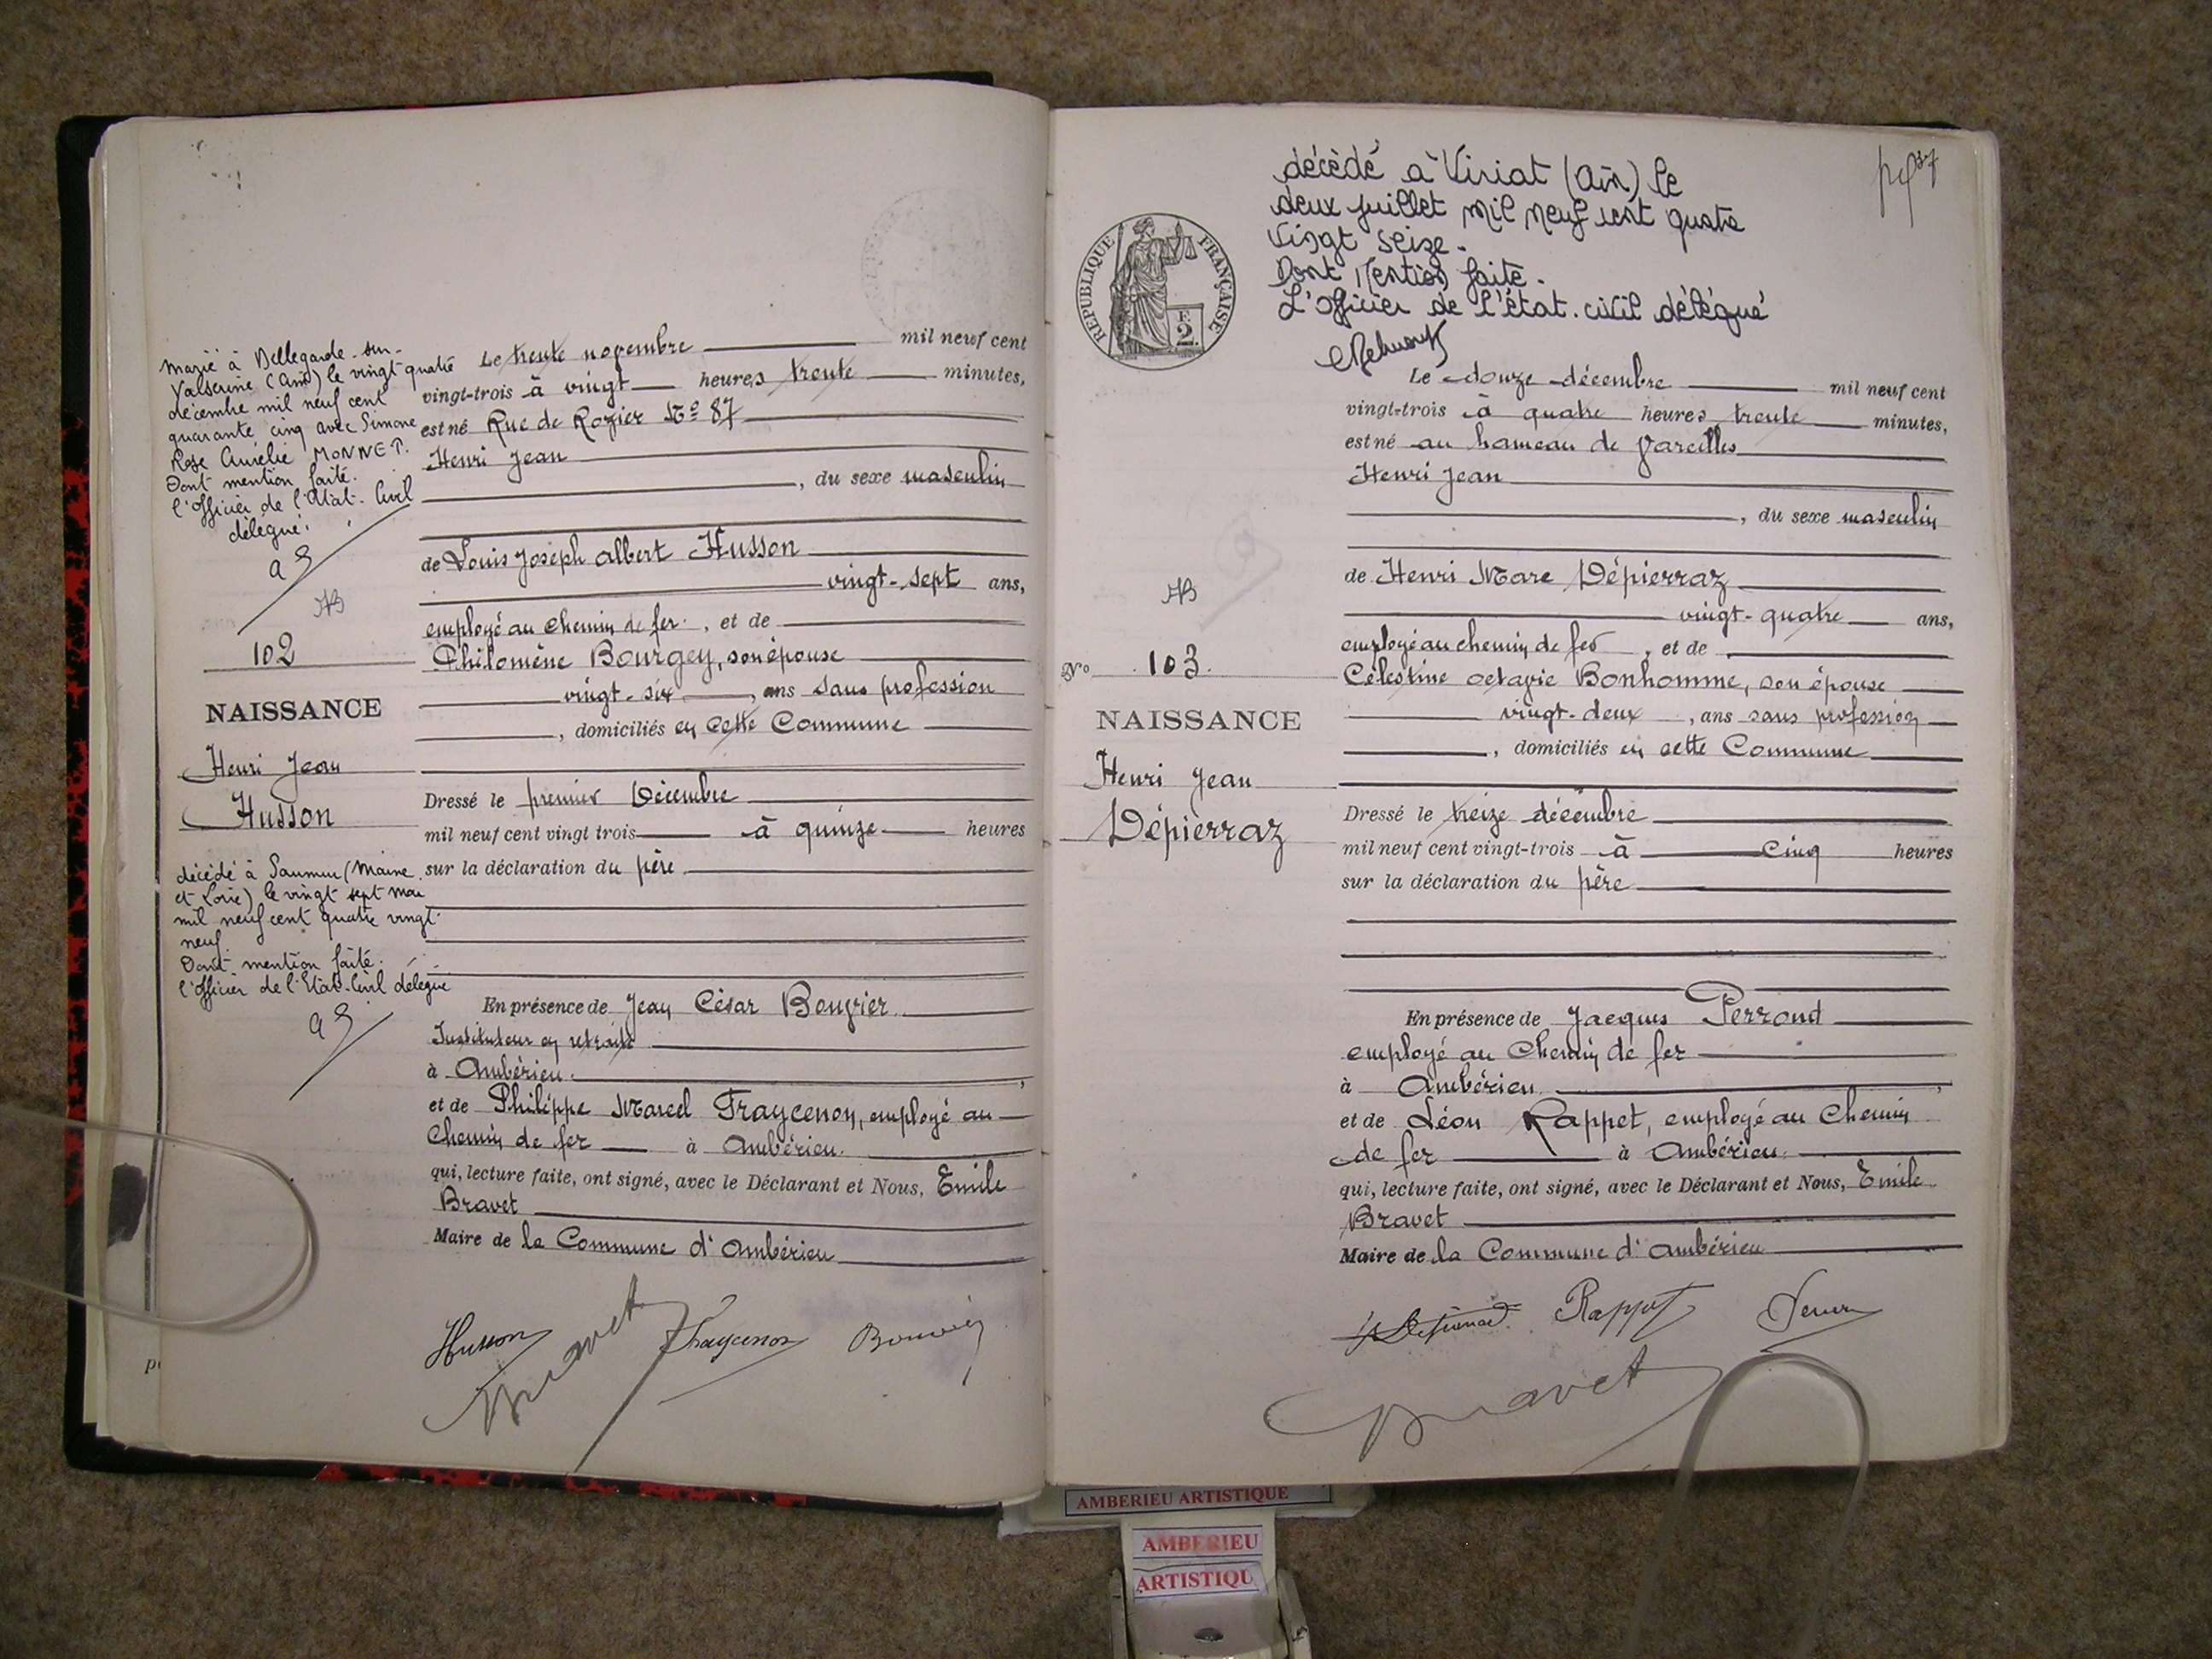 marié à Bellegarde-sur-
Valserine (Ain) le vingt quatre
décembre mil neuf cent
quarante cinq avec Simone
Rose Aurélie MONNET.
Dont mention faite.
l'Officier de l'Etat-Civil
délégué.
AB
102
NAISSANCE
Henri Jean
Husson
décédé à Saumur (Maine
et Loire) le vingt sept mai
mil neuf cent quatre vingt
neuf.
Dont mention faite.
l'Officier de l'Etat-Civil délégué
Le trente novembre mil neuf cent
vingt-trois à vingt heures trente minutes,
est né Rue de Rozier No 87
Henri Jean
, du sexe masculin
de Louis Joseph Albert Husson
vingt-sept ans,
employé au chemin de fer, et de
Philomène Bourgey, son épouse
vingt-six, ans sans profession
, domiciliés en cette Commune
Dressé le premier Décembre
mil neuf cent vingt trois à quinze heures
sur la déclaration du père
En présence de Jean César Bouvier
Instituteur en retraite
à Ambérieu.
et de Philippe Marcel Fraycenon, employé au
Chemin de fer à Ambérieu.
qui, lecture faite, ont signé, avec le Déclarant et Nous, Emile
Bravet
Maire de la Commune d'Ambérieu
Husson Bravet Fraycenon Bouvier
décédé à Viriat (Ain) le
deux juillet mil neuf cent quatre
vingt seize.
Dont Mention faite.
L'Officier de l'état.civil délégué
37
RÉPUBLIQUE FRANÇAISE
F.
2.
AB
No 103.
NAISSANCE
Henri Jean
Dépierraz
Le douze décembre mil neuf cent
vingt-trois à quatre heures trente minutes,
est né au hameau de Vareilles
Henri Jean
, du sexe masculin
de Henri Marc Dépierraz
vingt-quatre ans,
employé au chemin de fer, et de
Célestine Octavie Bonhomme, son épouse
vingt-deux, ans sans profession
, domiciliés en cette Commune
Dressé le treize décembre
mil neuf cent vingt-trois à cinq heures
sur la déclaration du père
En présence de Jacques Perroud
employé au Chemin de fer
à Ambérieu
et de Léon Rappet, employé au Chemin
de fer à Ambérieu.
qui, lecture faite, ont signé, avec le Déclarant et Nous, Emile
Bravet
Maire de la Commune d'Ambérieu
Rappet
Bravet
AMBERIEU ARTISTIQUE
AMBERIEU
ARTISTIQU